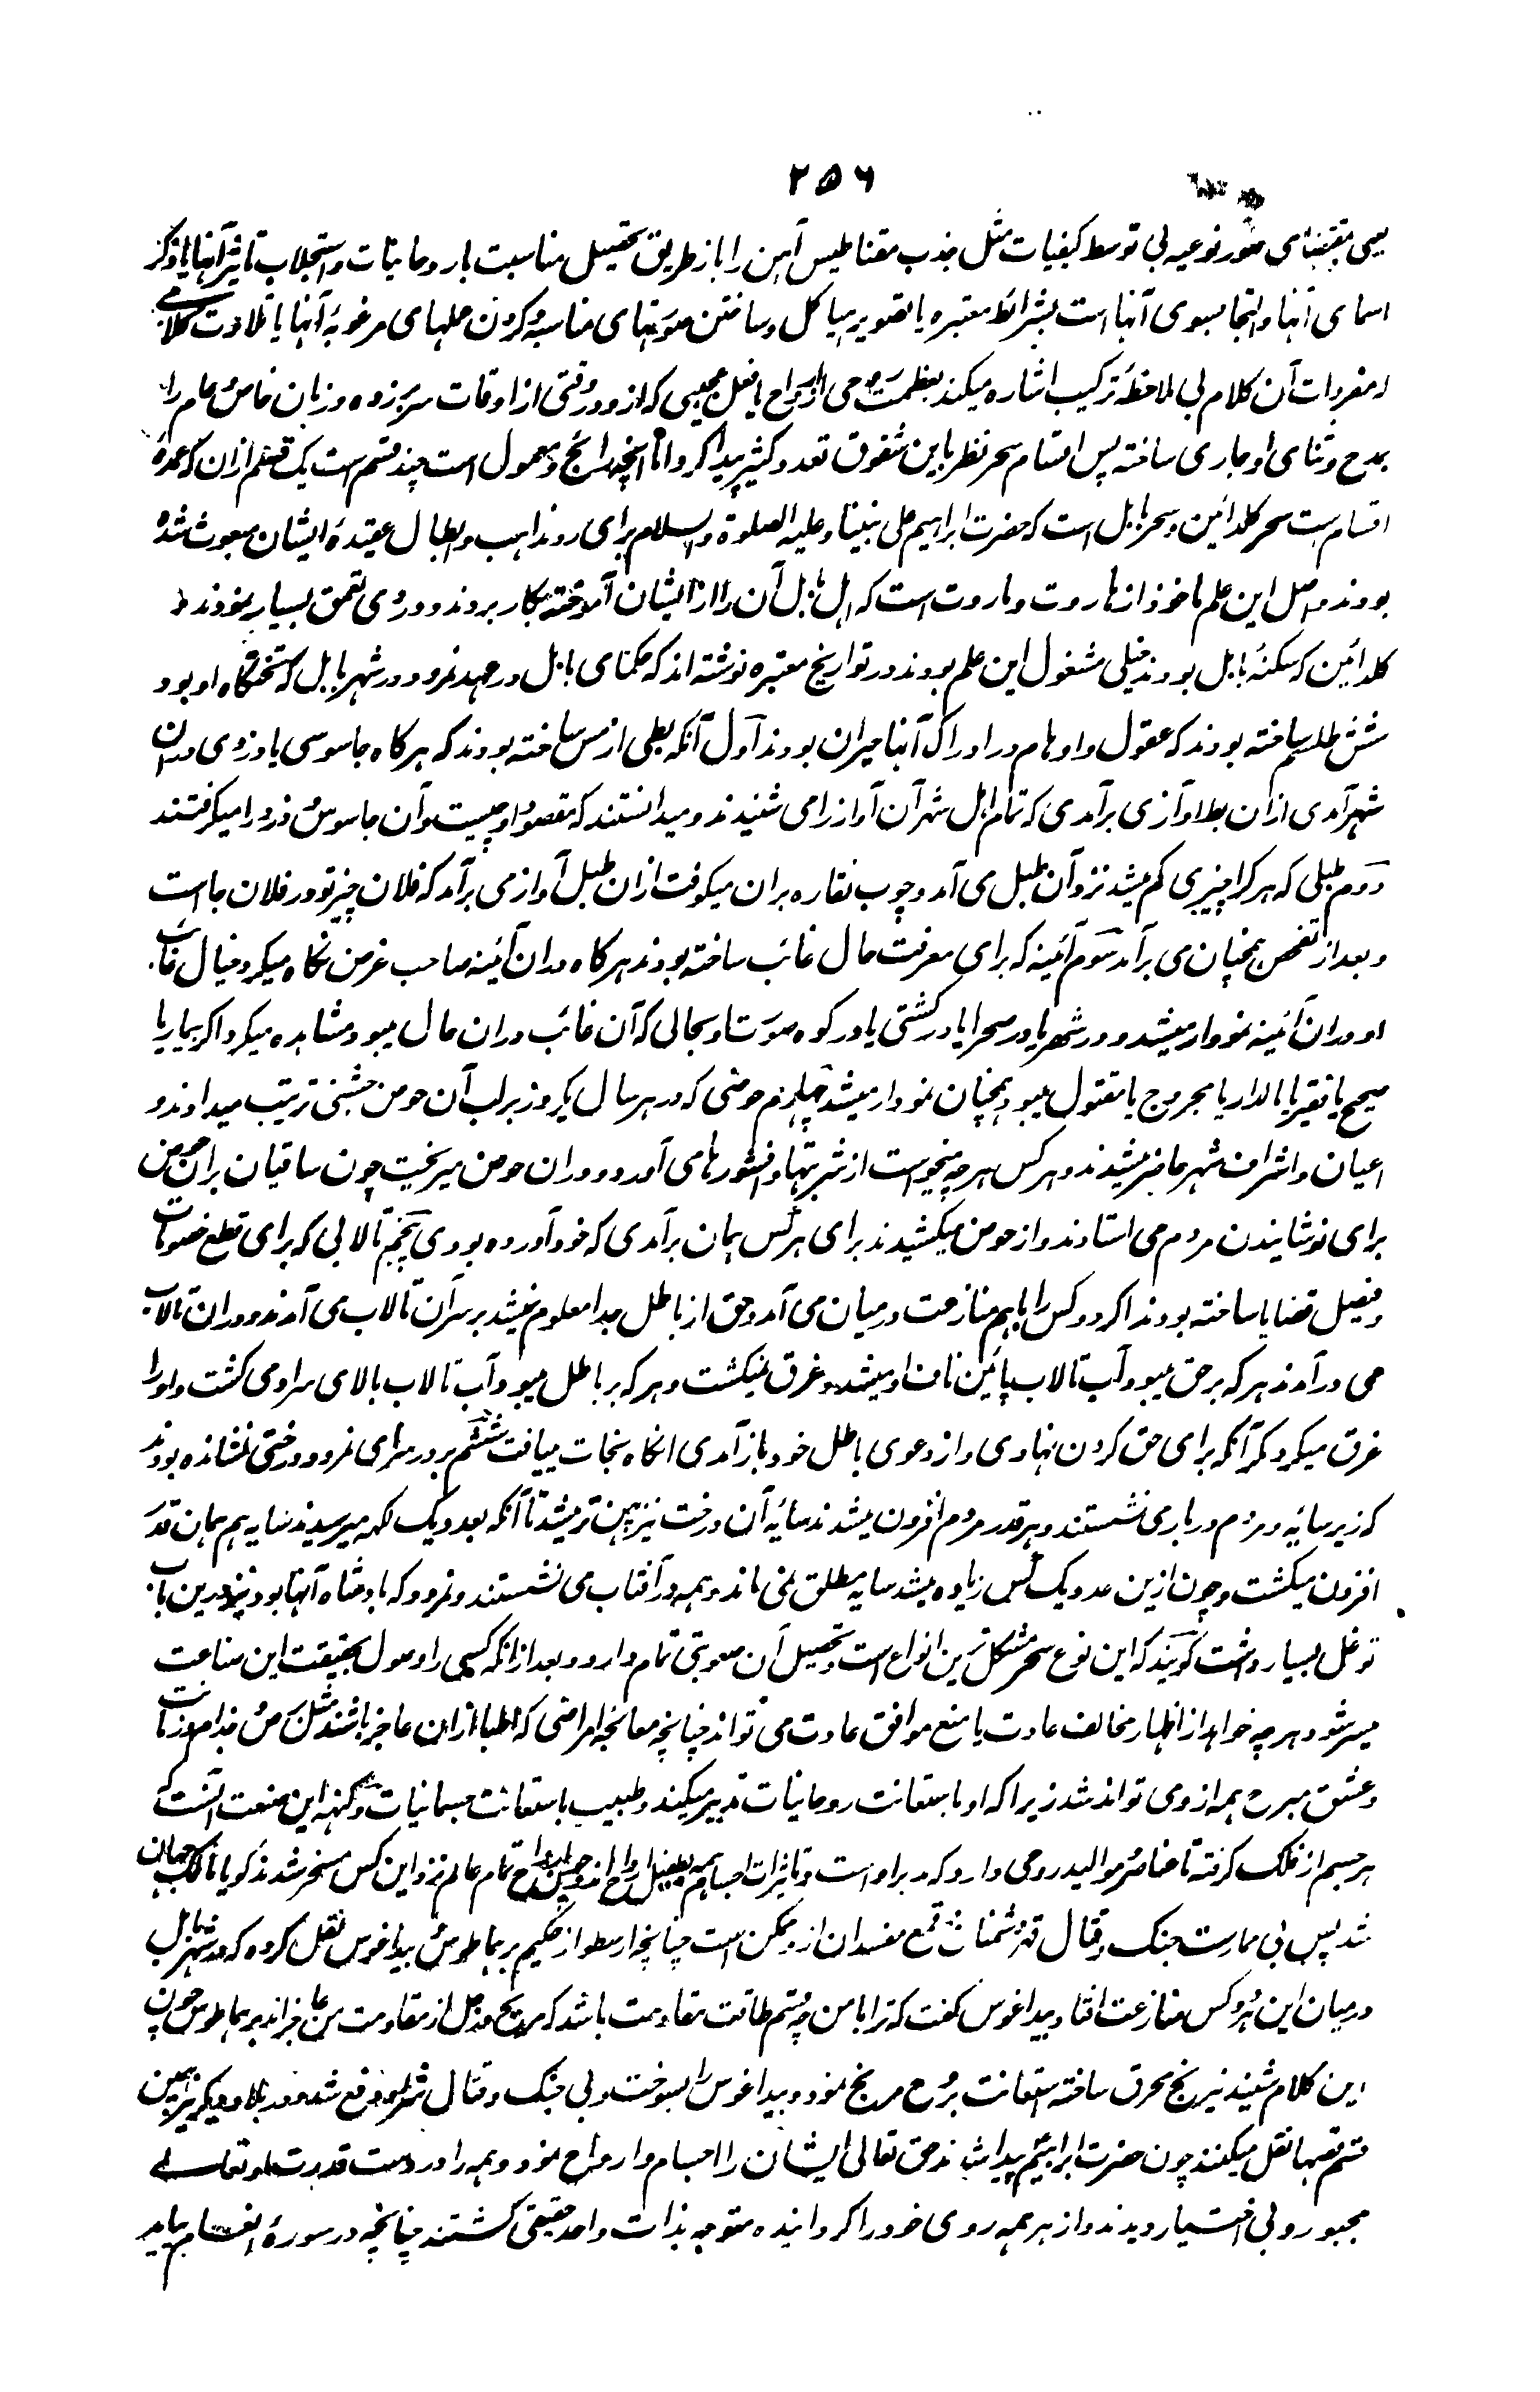 ۲۵۶
یعنی بمقتضای صور نوعیه بی توسط کیفیات مثل جذب مقناطیس آهن را باز طریق تحصیل مناسبت با روحانیات و استجلاب تاثیر آنها یا ذکر
اسمای آنها و التجا بسوی آنها است بشرائط معتبره یا تصویر هیاکل و ساختن صورتهای مناسبه و کردن عملهای مرغوبهٔ آنها یا تلاوت کلامی
که مفردات آن کلام بی ملاحظهٔ ترکیب اشاره میکند بعظمت روحی از ارواح یا فعل عجیبی که ازو در وقتی از اوقات سر برزده و زبان خاص و عام را
بمدح و ثنای او جاری ساخته پس اقسام سحر نظر باین شقوق تعدد کثیر پیدا کرد اما آنچه رائج و معمول است چند قسم است یک قسم ازان که عمدهٔ
اقسام است سحر کلدانین و سحر بابل است که حضرت ابراهیم علی نبینا و علیه الصلوة و السلام برای رد مذاهب و ابطال عقیدهٔ ایشان مبعوث شده
بودند و اصل این علم ماخوذ از هاروت و ماروت است که اهل بابل آن را از ایشان آموخته بکار بردند و در وی تعمق بسیار نمودند و
کلدانین که سکنهٔ بابل بودند خیلی مشغول این علم بودند در تواریخ معتبره نوشته اند که حکمای بابل در عهد نمرود در شهر بابل که تختگاه او بود
شش طلسم ساخته بودند که عقول و اوهام در ادراک آنها حیران بودند اول آنکه بطی از مس ساخته بودند که هرگاه جاسوسی یا دزدی دران
شهر آمدی ازان بط آوازی برآمدی که تمام اهل شهر آن آواز را می شنیدند و میدانستند که مقصود او چیست و آن جاسوس و دزد را میگرفتند
دوم طبلی که هر کرا چیزی گم میشد نزد آن طبل می آمد و چوب نقاره بران میکوفت ازان طبل آواز می برآمد که فلان چیز تو در فلان جا است
و بعد از تفحص همچنان می برآمد سوم آئینه که برای معرفت حال غائب ساخته بودند هرگاه دران آئینه صاحب غرض نگاه میکرد خیال غائب
او دران آئینه نمودار میشد و در شهر یا در صحرا یا در کشتی یا در کوه صورت او بحالی که آن غائب دران حال میبود مشاهده میکرد اگر بیمار یا
صحیح یا فقیر یا مالدار یا مجروح یا مقتول میبود همچنان نمودار میشد چهارم حوضی که در هر سال یکروز بر لب آن حوض جشنی ترتیب میدادند و
اعیان و اشراف شهر حاضر میشدند و هر کس هرچه میخواست از شربتها و افشورها می آورد و دران حوض میریخت چون ساقیان بران حوض
برای نوشانیدن مردم می استادند و از حوض میکشیدند برای هر کس همان برآمدی که خود آورده بودی پنجم تالابی که برای قطع خصومات
و فیصل قضایا ساخته بودند اگر دو کس را باهم منازعت درمیان می آمد و حق از باطل جدا معلوم نمیشد بر سر آن تالاب می آمدند و دران تالاب
می درآمدند هر که بر حق میبود آب تالاب پائین ناف او میشد و غرق نمیگشت و هر که بر باطل میبود آب تالاب بالای سر او می گشت و او را
غرق میکرد مگر آنکه برای حق گردن نهادی و از دعوی باطل خود باز آمدی آنگاه نجات مییافت ششم بر در سرای نمرود درختی نشانده بودند
که زیر سایه او مردم درباری نشستند و هر قدر مردم افزون میشدند سایهٔ آن درخت نیز پهن تر میشد تا آنکه بعدد یک لکهه میرسیدند سایه هم همان قدر
افزون میگشت و چون ازین عدد یک کس زیاده میشد سایه مطلق نمی ماند و همه در آفتاب می نشستند و نمرود که بادشاه آنها بود نیز درین باب
توغل بسیار داشت گویند که این نوع سحر مشکل ترین انواع است و تحصیل آن صعوبتی تمام دارد و بعد از آنکه کسی را وصول بحقیقت این صناعت
میسر شود هر چه خواهد از اظهار مخالف عادت یا منع موافق عادت می تواند چنانچه معالجه امراضی که اطبا ازان عاجز باشند مثل برص و جذام و زمانت
و عشق مبرح همه از وی تواند شد زیرا که او باستعانت روحانیات تدبیر میکند و طبیب باستعانت جسمانیات و کنه این صنعت آنست که
هر جسم از فلک گرفته تا عناصر و موالید روحی دارد که مدبر اوست و تاثیرات اجسام همه بطفیل ارواح اند و چون ارواح تمام عالم نزد این کس مسخر شدند گویا مالک جهان
شد پس بی ممارست جنگ و قتال قهر دشمنان و قمع مفسدان ازو ممکن است چنانچه ارسطو از حکیم برهماطوس و بیداغوس نقل کرده که در شهر بابل
درمیان این هر دو کس منازعت افتاد بیداغوس گفت که ترا با من چه قسم طاقت مقاومت باشد که مریخ و زحل از مقاومت من عاجز اند برهماطوس چون
این کلام شنید نیرنج محرق ساخته استعانت بروح مریخ نمود و بیداغوس را بسوخت و بی جنگ و قتال شر او دفع شد و در بلاد دیگر نیز همین
قسم قصها نقل میکنند چون حضرت ابراهیم پیدا شدند حق تعالی ایشان را اجسام و ارواح نمود و همه را در دست قدرت او تعالی
مجبور و بی اختیار دیدند و از هر همه روی خود را گردانیده متوجه بذات واحد حقیقی گشتند چنانچه در سورهٔ انعام بیاید